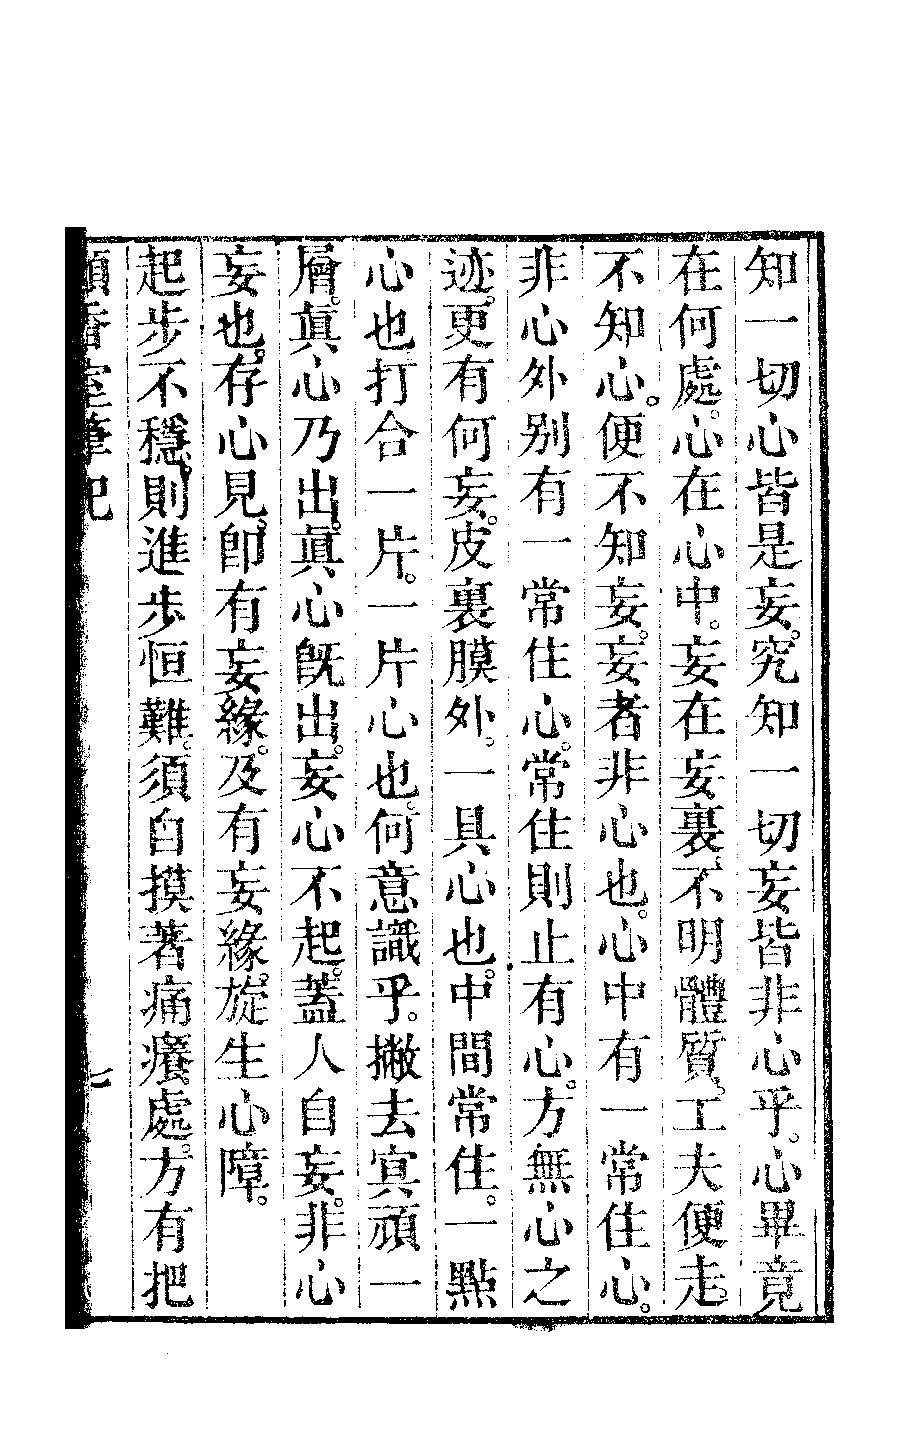 知一切心皆是妄。究知一切妄皆非心乎。心畢竟
在何處。心在心中。妄在妄裏。不明體質。工夫便走。
不知心。便不知妄。妄者非心也。心中有一常住心。
非心外别有一常住心。常住則止有心。方無心之
迹。更有何妄。皮裏膜外。一具心也。中間常住。一點
心也打合一片。一片心也。何意識乎。撇去㝠頑一
層。眞心乃出。眞心旣出。妄心不起。蓋人自妄。非心
妄也。存心見。卽有妄緣。及有妄緣。旋生心障。
起步不穩。則進步恒難。須自摸著痛癢處。方有把
香室筆記
七